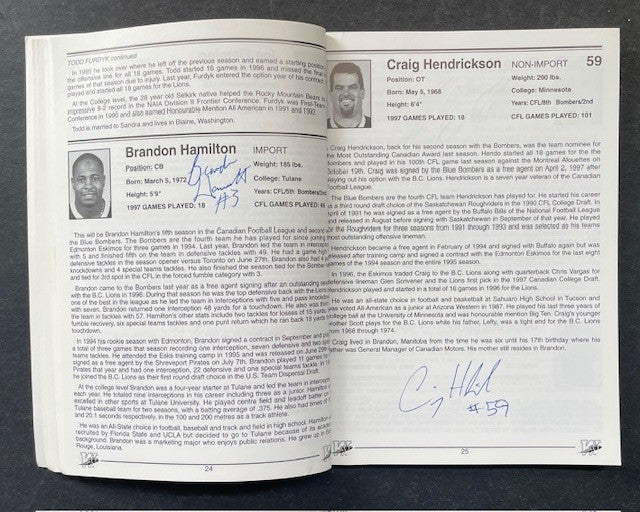 TODD FURDYK continued
In 1995 he took over where he left off the previous season and earned a starting position
the offensive line for all 18 games. Todd started 16 games in 1996 and missed the final
games of that season due to injury. Last year, Furdyk entered the option year of his contract
played and started all 18 games for the Lions.
At the College level, the 28 year old Selkirk native helped the Rocky Mountain Bears to
impressive 8-2 record in the NAIA Division II Frontier Conference. Furdyk was First-Team
Conference in 1990 and also earned Honourable Mention All American in 1991 and 1992.
Todd is married to Sandra and lives in Blaine, Washington.
Brandon Hamilton IMPORT
Position: CB Weight: 185 lbs.
Born: March 5, 1972 College: Tulane
Height: 5'9" Years: CFL/5th Bombers/2nd
1997 GAMES PLAYED: 18 CFL GAMES PLAYED:
#3
This will be Brandon Hamilton's fifth season in the Canadian Football League and second
the Blue Bombers. The Bombers are the fourth team he has played for since joining
Edmonton Eskimos for three games in 1994. Last year, Brandon led the team in interceptions
with 5 and finished fifth on the team in defensive tackles with 49. He had a game high
defensive tackles in the season opener versus Toronto on June 27th. Brandon also had
knockdowns and 4 special teams tackles. He also finished the season tied for the Bomber
and tied for 3rd spot in the CFL in the forced fumble category with 3.
Brandon came to the Bombers last year as a free agent after signing an outstanding
with the B.C. Lions in 1996. During that season he was the top defensive back with the Lions
one of the best in the league as he led the team in interceptions with five and pass knockdowns
with seven. Brandon returned one interception 48 yards for a touchdown. He also was
the team in tackles with 57. Hamilton's other stats include two tackles for losses of 15 yards,
fumble recovery, six special teams tackles and one punt return which he ran back 15 yards
touchdown.
In 1994 his rookie season with Edmonton, Brandon signed a contract in September and
a total of three games that season recording one interception, seven defensive and two special
teams tackles. He attended the Esks training camp in 1995 and was released on June
signed as a free agent by the Shreveport Pirates on July 7th. Brandon played 11 games
Pirates that year and had one interception, 22 defensive and one special teams tackle. In
he joined the B.C. Lions as their first round draft choice in the U.S. Team Dispersal Draft.
At the college level Brandon was a four-year starter at Tulane and led the team in interceptions
each year. He totaled nine interceptions in his career including three as a junior. Hamilton
excelled in other sports at Tulane University. He played centre field and leadoff batter
Tulane baseball team for two seasons, with a batting average of .375. He also had times of
and 20.1 seconds respectively, in the 100 and 200 metres as a track athlete.
He was an All-State choice in football, baseball and track and field in high school. Hamilton
recruited by Florida State and UCLA but decided to go to Tulane because of its academic
background. Brandon was a marketing major who enjoys public relations. He grew up in
Rouge, Louisiana.
24
Craig Hendrickson NON-IMPORT 59
Position: OT Weight: 290 lbs.
Born: May 5, 1968 College: Minnesota
Height: 6'4" Years: CFL/8th Bombers/2nd
1997 GAMES PLAYED: 18 CFL GAMES PLAYED: 101
Craig Hendrickson, back for his second season with the Bombers, was the team nominee for
the Most Outstanding Canadian Award last season. Hendo started all 18 games for the
Bombers and played in his 100th CFL game last season against the Montreal Alouettes on
October 19th. Craig was signed by the Blue Bombers as a free agent on April 2, 1997 after
playing out his option with the B.C. Lions. Hendrickson is a seven year veteran of the Canadian
Football League.
The Blue Bombers are the fourth CFL team Hendrickson has played for. He started his career
as a third round draft choice of the Saskatchewan Roughriders in the 1990 CFL College Draft. In
April of 1991 he was signed as a free agent by the Buffalo Bills of the National Football League
and released in August before signing with Saskatchewan in September of that year. He played
for Roughriders for three seasons from 1991 through 1993 and was selected as his teams
most outstanding offensive lineman.
Hendrickson became a free agent in February of 1994 and signed with Buffalo again but was
released after training camp and signed a contract with the Edmonton Eskimos for the last eight
games of the 1994 season and the entire 1995 season.
In 1996, the Eskimos traded Craig to the B.C. Lions along with quarterback Chris Vargas for
offensive lineman Glen Scrivener and the Lions first pick in the 1997 Canadian College Draft.
Hendrickson played and started in a total of 16 games in 1996 for the Lions.
He was an all-state choice in football and basketball at Sahuaro High School in Tucson and
was voted All-American as a junior at Arizona Western in 1987. He played his last three years of
college ball at the University of Minnesota and was honourable mention Big Ten. Craig's younger
brother Scott plays for the B.C. Lions while his father, Lefty, was a tight end for the B.C. Lions
from 1968 through 1974.
Craig lived in Brandon, Manitoba from the time he was six until his 17th birthday where his
father was General Manager of Canadian Motors. His mother still resides in Brandon.
#59
25